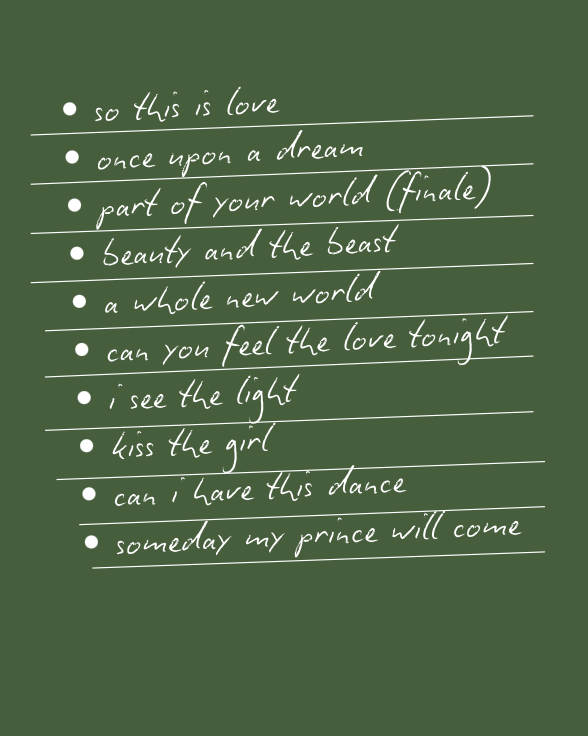 so this is love
once upon a dream
part of your world (finale)
beauty and the beast
a whole new world
can you feel the love tonight
i see the light
kiss the girl
can i have this dance
someday my prince will come